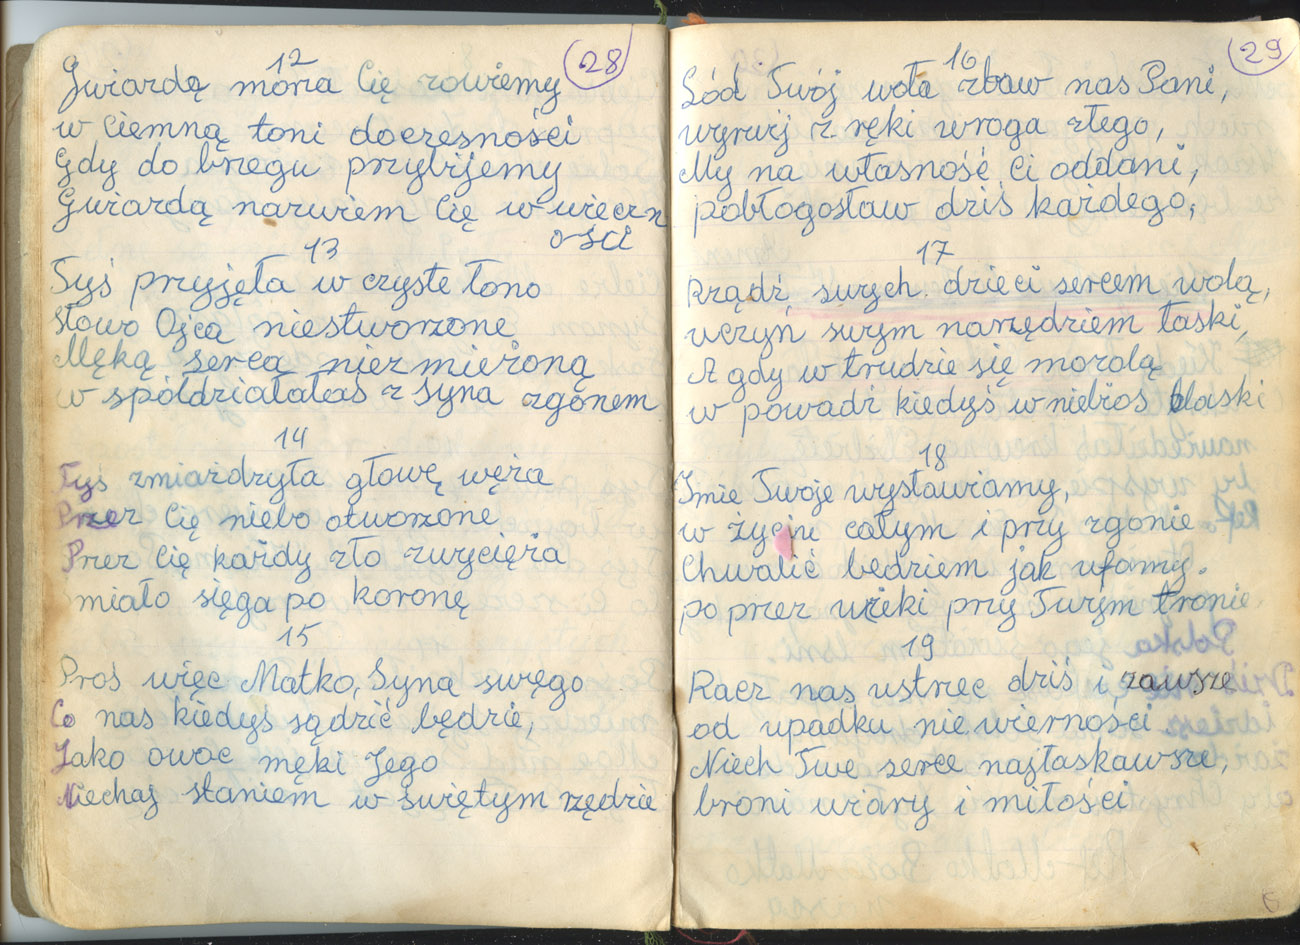 28
12
Gwiazdą moża Cię zowiemy
w ciemną toni doczęsności
Gdy do bżegu przybijemy
Gwiazdą nazwiem Cię w wieczn
ości
13
Tyś przyjęła w czyste łono
słowo Ojca niestworzone
Męką serca niezmieżoną
w spółdziałałaś z Syna zgonem
14
Tyś zmiażdzyła głowę węża
Przez Cię niebo otworzone
Przez Cię każdy zło zwycięża
Smiało sięga po koronę
15
Proś więc Matko, Syna swęgo
Co nas kiedyś sądzić będzie,
Jako owoc męki Jego
Niechaj staniem w świętym rzędzie
29
16
Lód Twój woła zbaw nas Pani,
wyrwij z ręki wroga złego,
My na własność Ci oddani,
pobłogosław dziś każdego,
17
Rządź swych dzieci sercem wolą,
uczyń swym narzędziem łaski,
A gdy w trudzie się mozolą
w powadź kiedyś w niebios blaski
18
Imie Twoje wysławiamy,
w życini całym i przy zgonie
Chwalić bedziem jak ufamy.
po przez wieki przy Twym tronie.
19
Racz nas ustrzec dziś i zawsze
od upadku nie wierności
Niech Twe serce najłaskawsze,
broni wiary i miłości